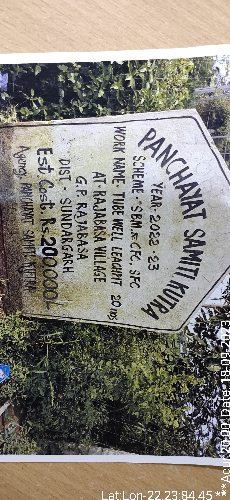 PANCHAYAT SAMITI KUTRA
YEAR 2022-23
SCHEME-SBM & CFC, SFC
WORK NAME- TUBE WELL LEACHPIT 20 nos
AT-RAJABASA VILLAGE
G.P. RAJABASA
DIST- SUNDARGARH
Est. Cost. Rs-200,000/-
Agency- PANCHAYAT SAMITI, KUTRA
Lat Lon-22.23:84.45